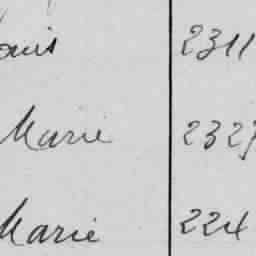 ouis 2311
Marie 2327
Marie 224